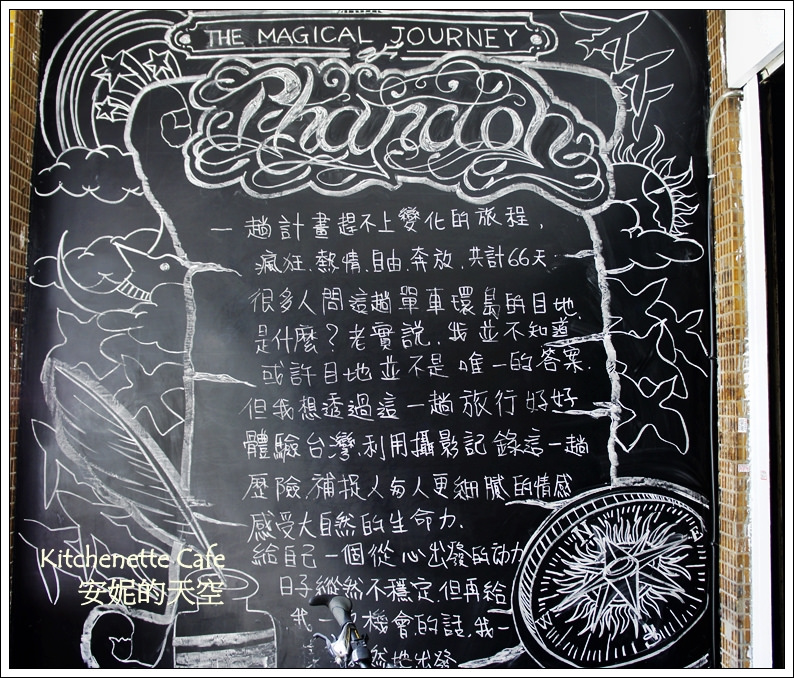 THE MAGICAL JOURNEY
of
Phandon
一趟計畫趕不上變化的旅程,
瘋狂.熱情.自由.奔放.共計66天
很多人問這趟單車環島的目地.
是什麼?老實說.我並不知道
或許目地並不是唯一的答案.
但我想透過這一趟旅行好好
體驗台灣.利用攝影記錄這一趟
歷險.補捉人與人更細膩的情感
感受大自然的生命力.
給自己一個從心出發的動力
日子縱然不穩定.但再給
我一 機會的話.我一
然地出發
E
W
Kitchenette Cafe
安妮的天空